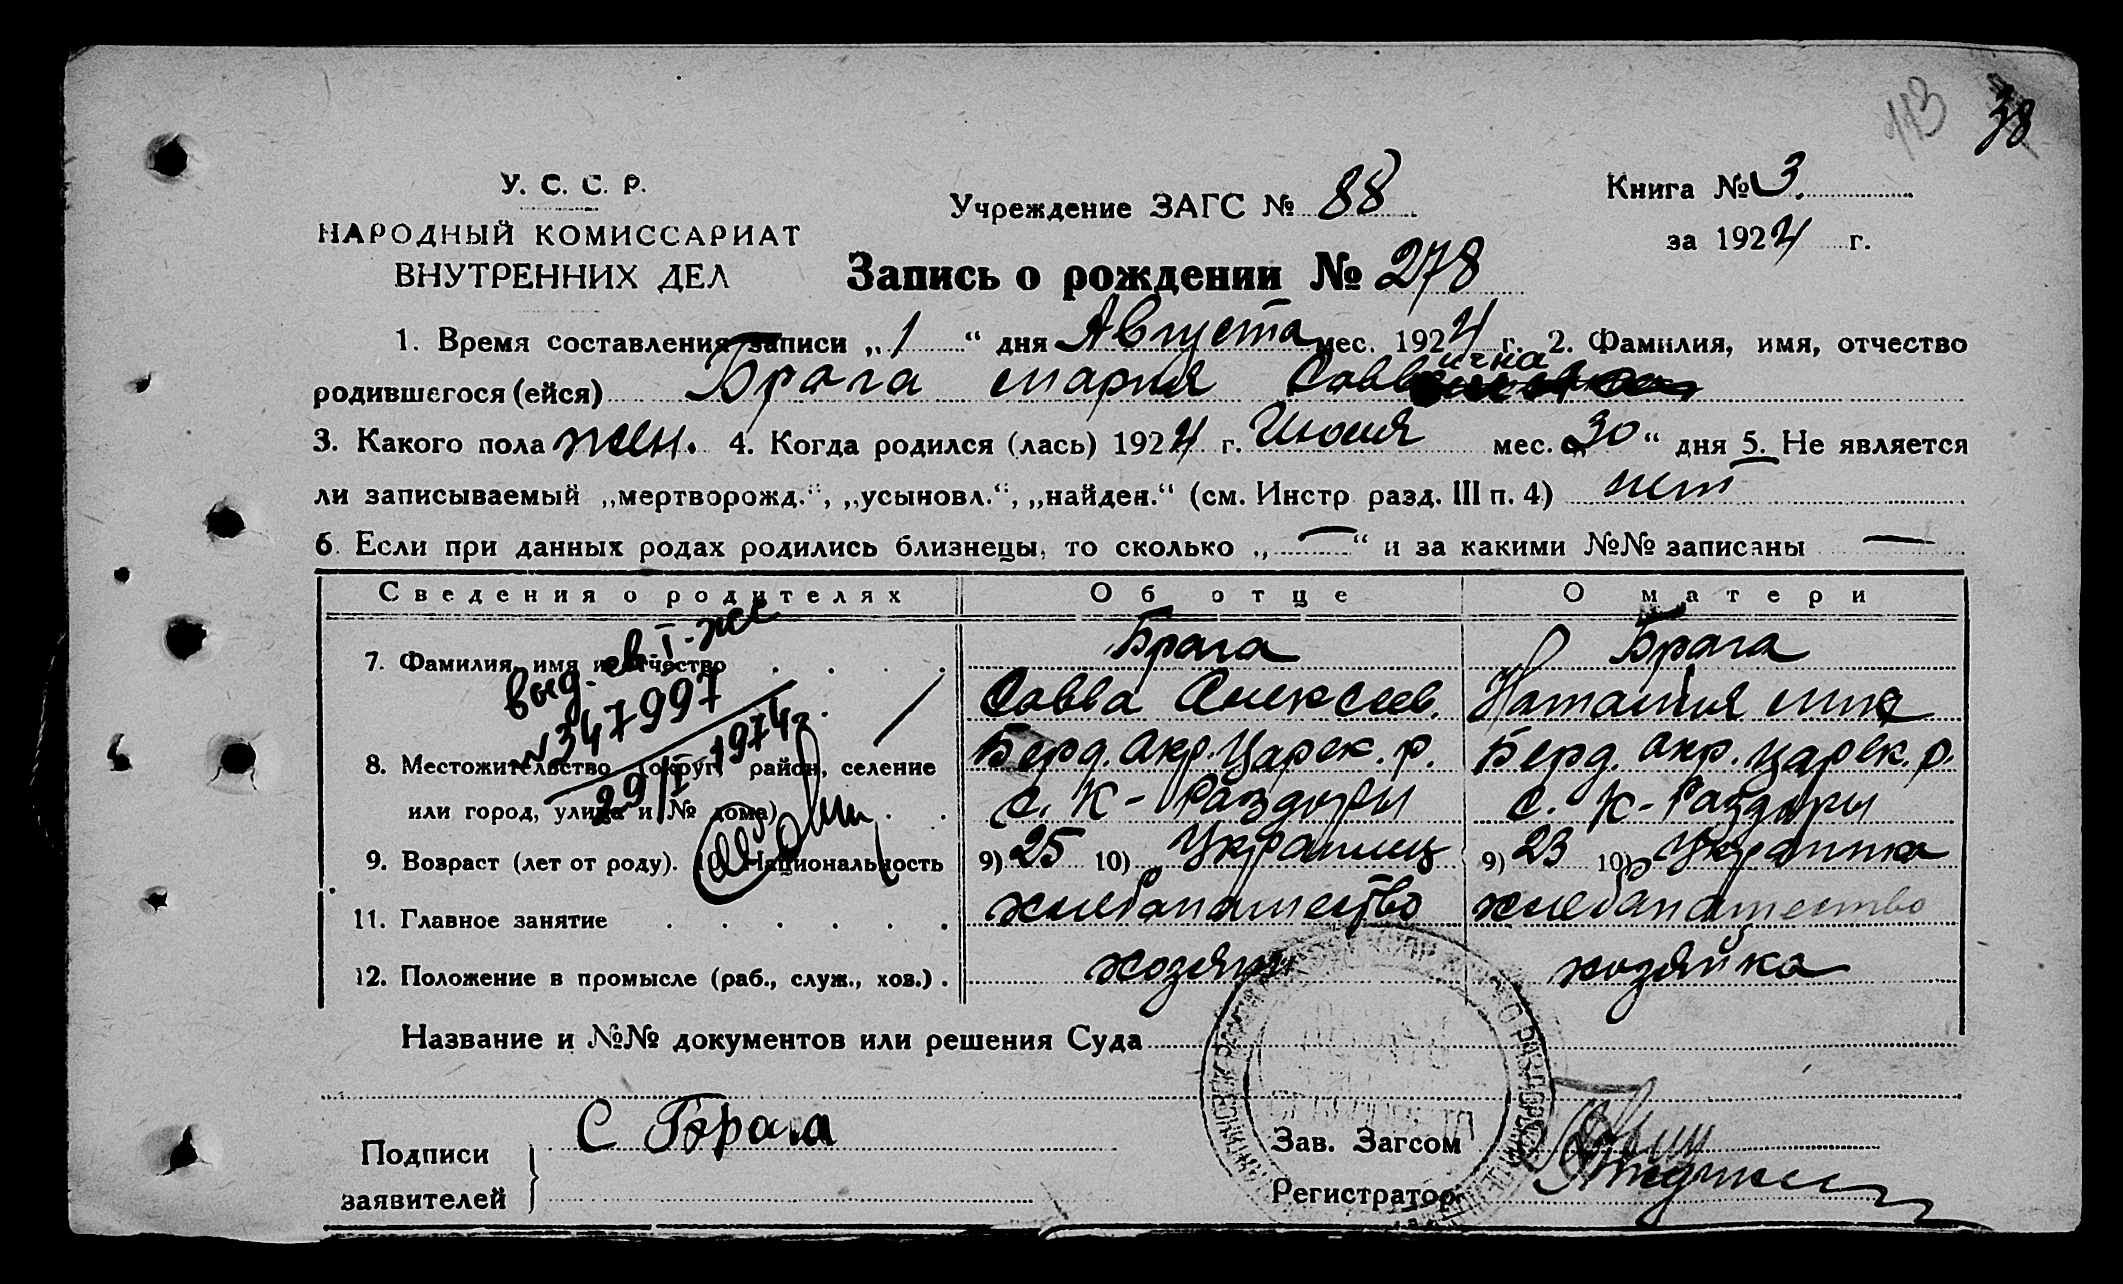 113 38
У. С. С. Р.
НАРОДНЫЙ КОМИССАРИАТ
ВНУТРЕННИХ ДЕЛ
Учреждение ЗАГС № 88
Книга № 3.
за 1924 г.
Запись о рождении № 278
1. Время составления записи „1“ дня Августа мес. 1924 г. 2. Фамилия, имя, отчество
родившегося (ейся) Брага Мария Саввична
3. Какого пола жен. 4. Когда родился (лась) 1924 г. Июля мес. „30“ дня 5. Не является
ли записываемый „мертворожд.“, „усыновл.“, „найден.“ (см. Инстр разд. III п. 4) нет
6. Если при данных родах родились близнецы, то сколько „—“ и за какими №№ записаны —
Сведения о родителях Об отце О матери
7. Фамилия, имя и отчество . . . . Брага Брага
Савва Алексеев. Наталия
8. Местожительство (округ, район, селение Берд. окр. Царек. р. Берд. окр. Царек. р.
или город, улица и № дома) . . с. К-Раздоры с. К-Раздоры
9. Возраст (лет от роду). 10. Национальность 9) 25 10) Украинец 9) 23 10) Украинка
11. Главное занятие . . . . . . хлебопашество хлебопашество
12. Положение в промысле (раб., служ., хоз.) . хозяин хозяйка
выд. св. I-жс
№ 347997
29/I 1974г.
Название и №№ документов или решения Суда
Подписи заявителей С Брага
Зав. Загсом
Регистратор